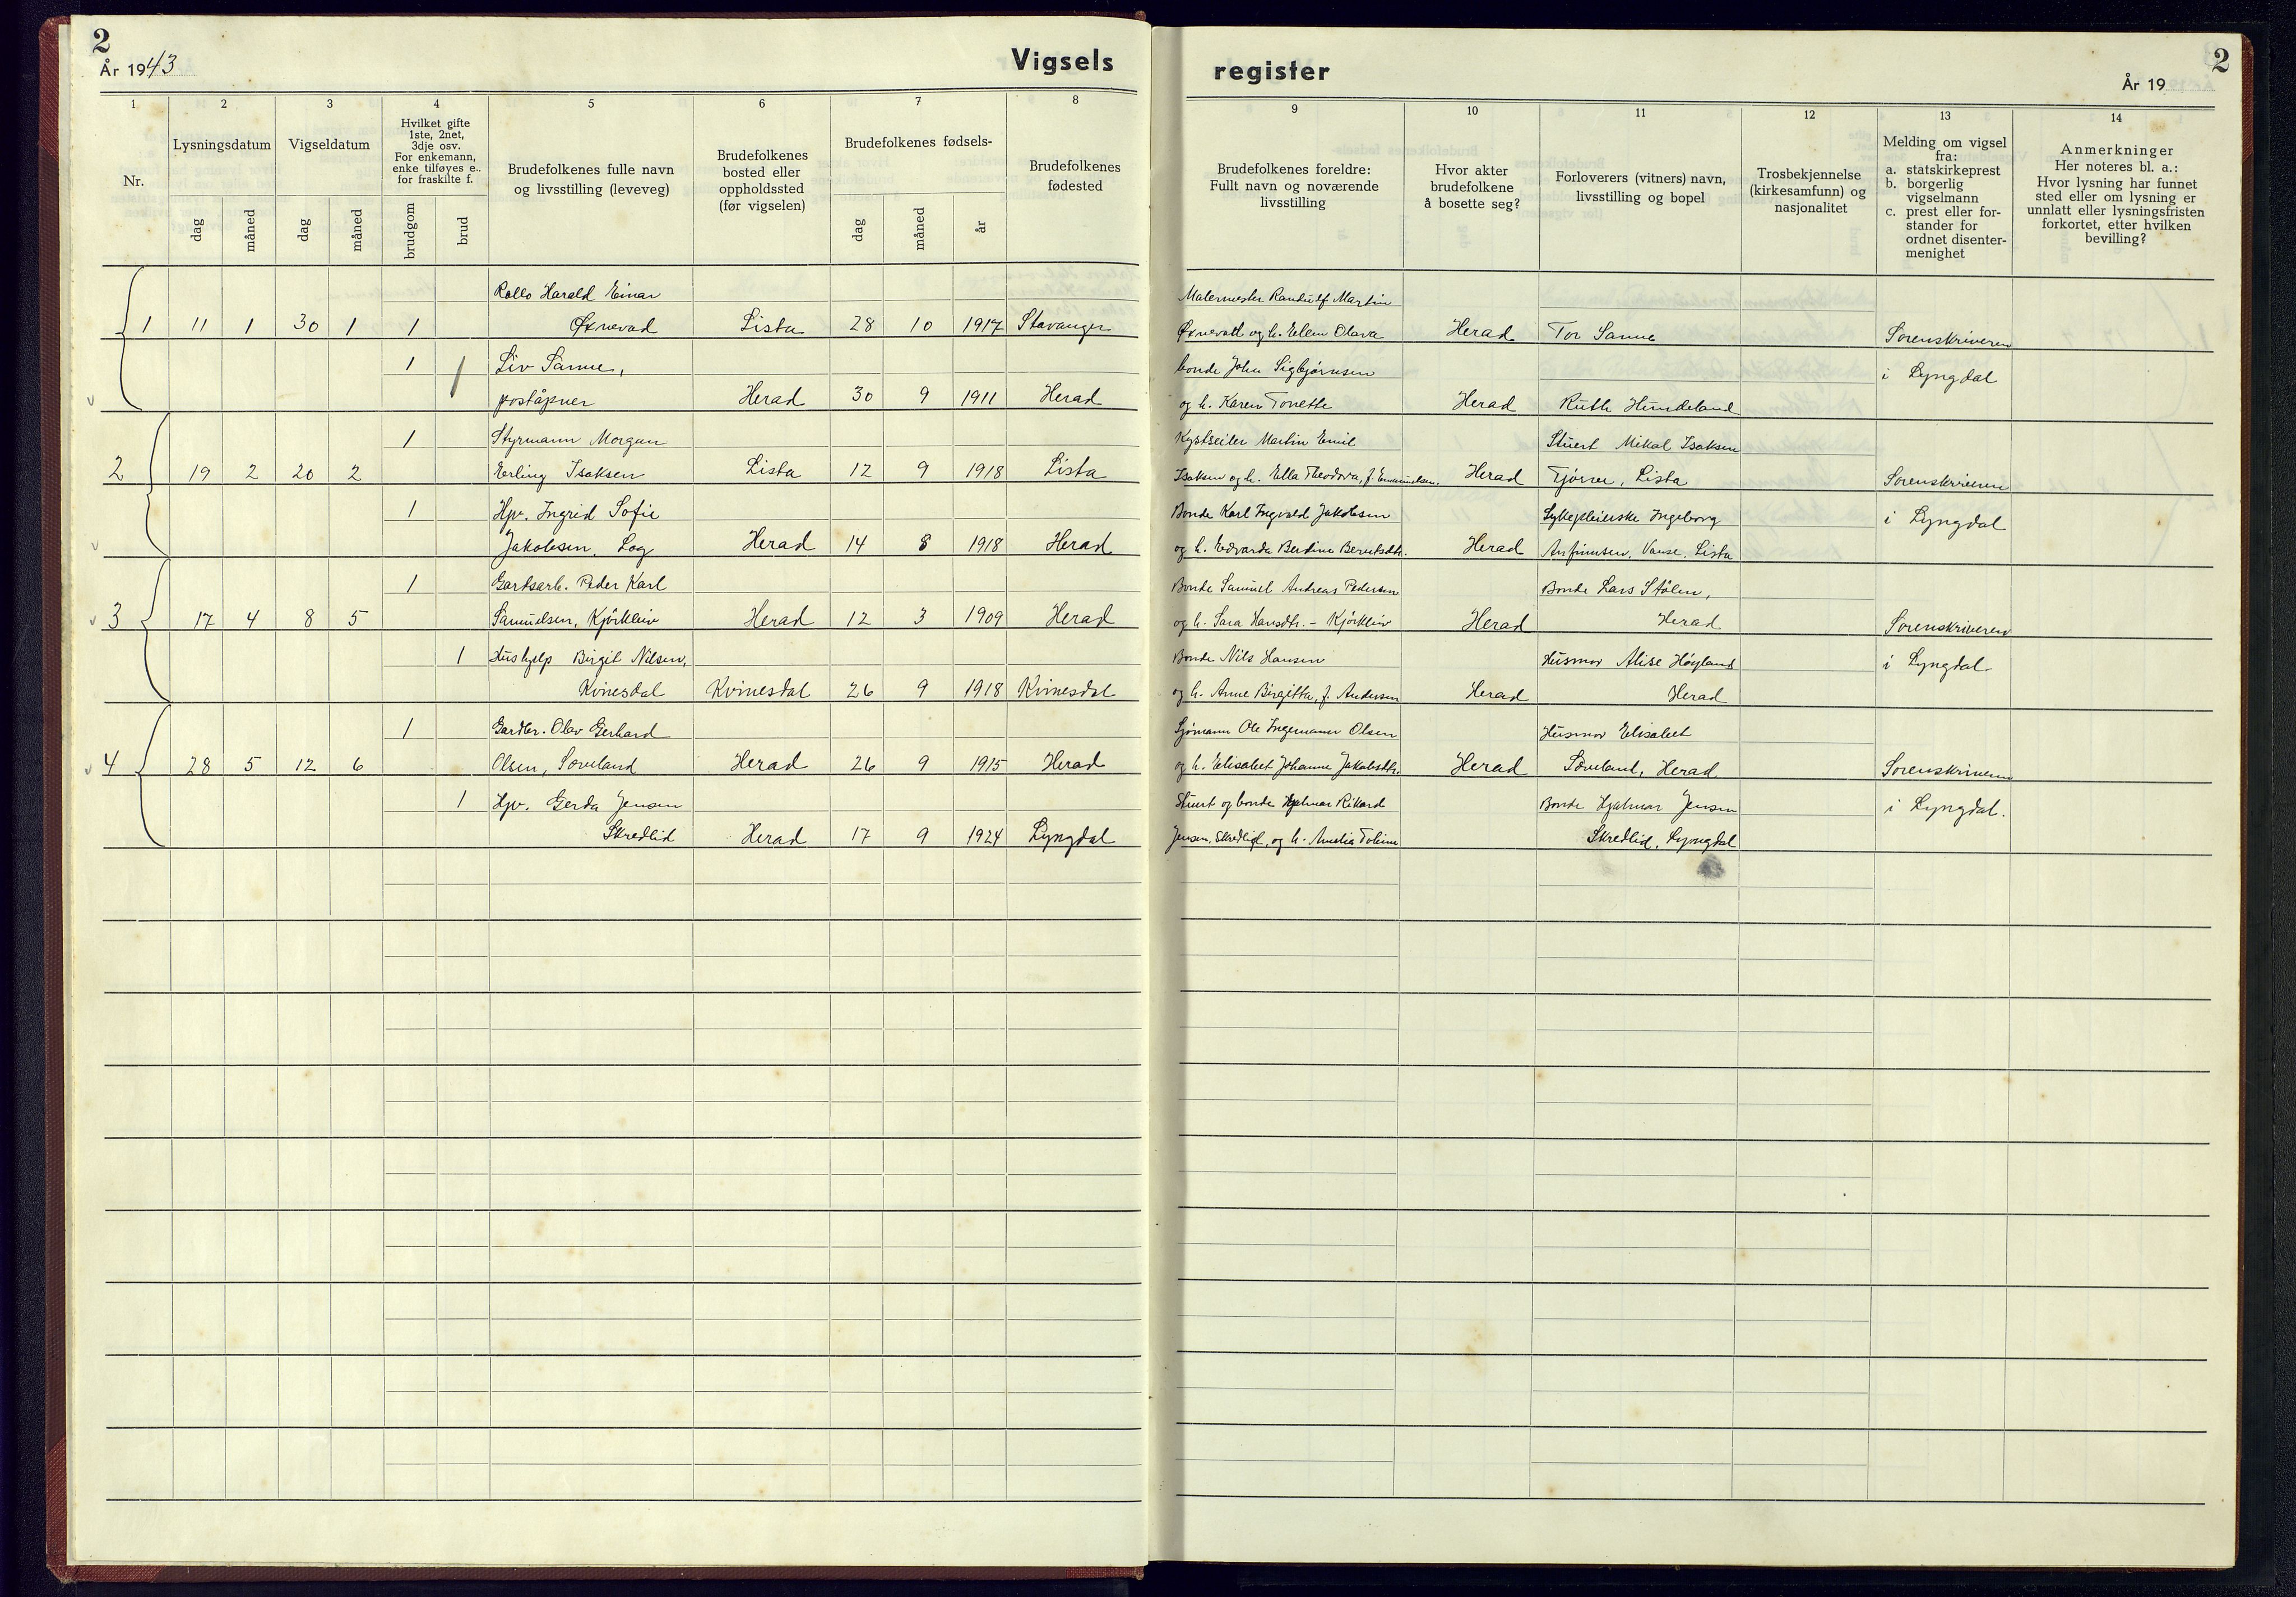 2
År 1943
Vigsels
1
2
3
4
5
6
7
8
Nr.
Lysningsdatum
Vigseldatum
Hvilket gifte
1ste, 2net,
3dje osv.
For enkemann,
enke tilføyes e.,
for fraskilte f.
Brudefolkenes fulle navn
og livsstilling (leveveg)
Brudefolkenes
bosted eller
oppholdssted
(før vigselen)
Brudefolkenes fødsels-
Brudefolkenes
fødested
dag
måned
dag
måned
brudgom
brud
dag
måned
år
Rollo Harald Einar
1 11 1 30 1 1 Øxnevad Lista 28 10 1917 Stavanger
1 Liv Sanne,
poståpner Herad 30 9 1911 Herad
1 Styrmann Morgan
2 19 2 20 2 Erling Isaksen Lista 12 9 1918 Lista
1 Hpv. Ingrid Sofie
Jakobsen, Log Herad 14 8 1918 Herad
1 Gartsarb. Peder Karl
3 17 4 8 5 Samuelsen, Kjørkleiv Herad 12 3 1909 Herad
1 Hushjelp Birgit Nilsen,
Kvinesdal Kvinesdal 26 9 1918 Kvinesdal
1 Gardbr. Olav Gerhard
4 28 5 12 6 Olsen, Sæveland Herad 26 9 1915 Herad
1 Hpv. Gerda Jensen
Skredlid Herad 17 9 1924 Lyngdal
register
2
År 19
9
10
11
12
13
14
Brudefolkenes foreldre:
Fullt navn og noværende
livsstilling
Hvor akter
brudefolkene
å bosette seg?
Forloverers (vitners) navn,
livsstilling og bopel
Trosbekjennelse
(kirkesamfunn) og
nasjonalitet
Melding om vigsel
fra:
a. statskirkeprest
b. borgerlig
vigselmann
c. prest eller for-
stander for
ordnet disenter-
menighet
Anmerkninger
Her noteres bl. a.:
Hvor lysning har funnet
sted eller om lysning er
unnlatt eller lysningsfristen
forkortet, etter hvilken
bevilling?
Malermester Randulf Martin
Øxnevatl og h. Ellen Olava Herad Tor Sanne Sorenskriveren
bonde John Sigbjørnsen i Lyngdal
og h. Karen Tonette Herad Ruth Hundeland
Kystseiler Martin Emil Stuert Mikal Isaksen
Isaksen og h. Ella Theodora, f. Emanuelsen. Herad Tjørve, Lista Sorenskriveren
Bonde Karl Ingvald Jakobsen Sykepleierske Ingeborg i Lyngdal
og h. Edvarda Berdine Berntsdtr. Herad Anfinnsen, Vanse, Lista
Bonde Samuel Andreas Pedersen Bonde Lars Stølen,
og h. Sara Hansdtr. - Kjørkleiv Herad Herad Sorenskriveren
Bonde Nils Hansen Husmor Alise Høyland i Lyngdal
og h. Anne Birgitta, f. Andersen Herad Herad
Sjømann Ole Ingemann Olsen Husmor Elisabet
og h. Elisabet Johanne Jakobsdtr. Herad Sæveland, Herad Sorenskriveren
Stuert og bonde Hjalmar Rikard Bonde Hjalmar Jensen i Lyngdal.
Jensen, Skredlid, og h. Amelia Tobine Skredlid, Lyngdal